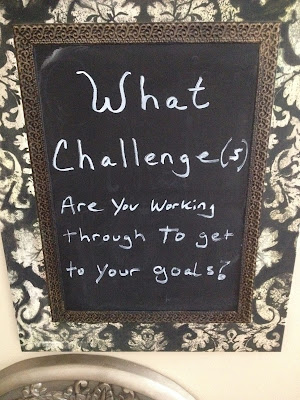 What
Challenge(s)
Are You Working
through To get
to Your goals?